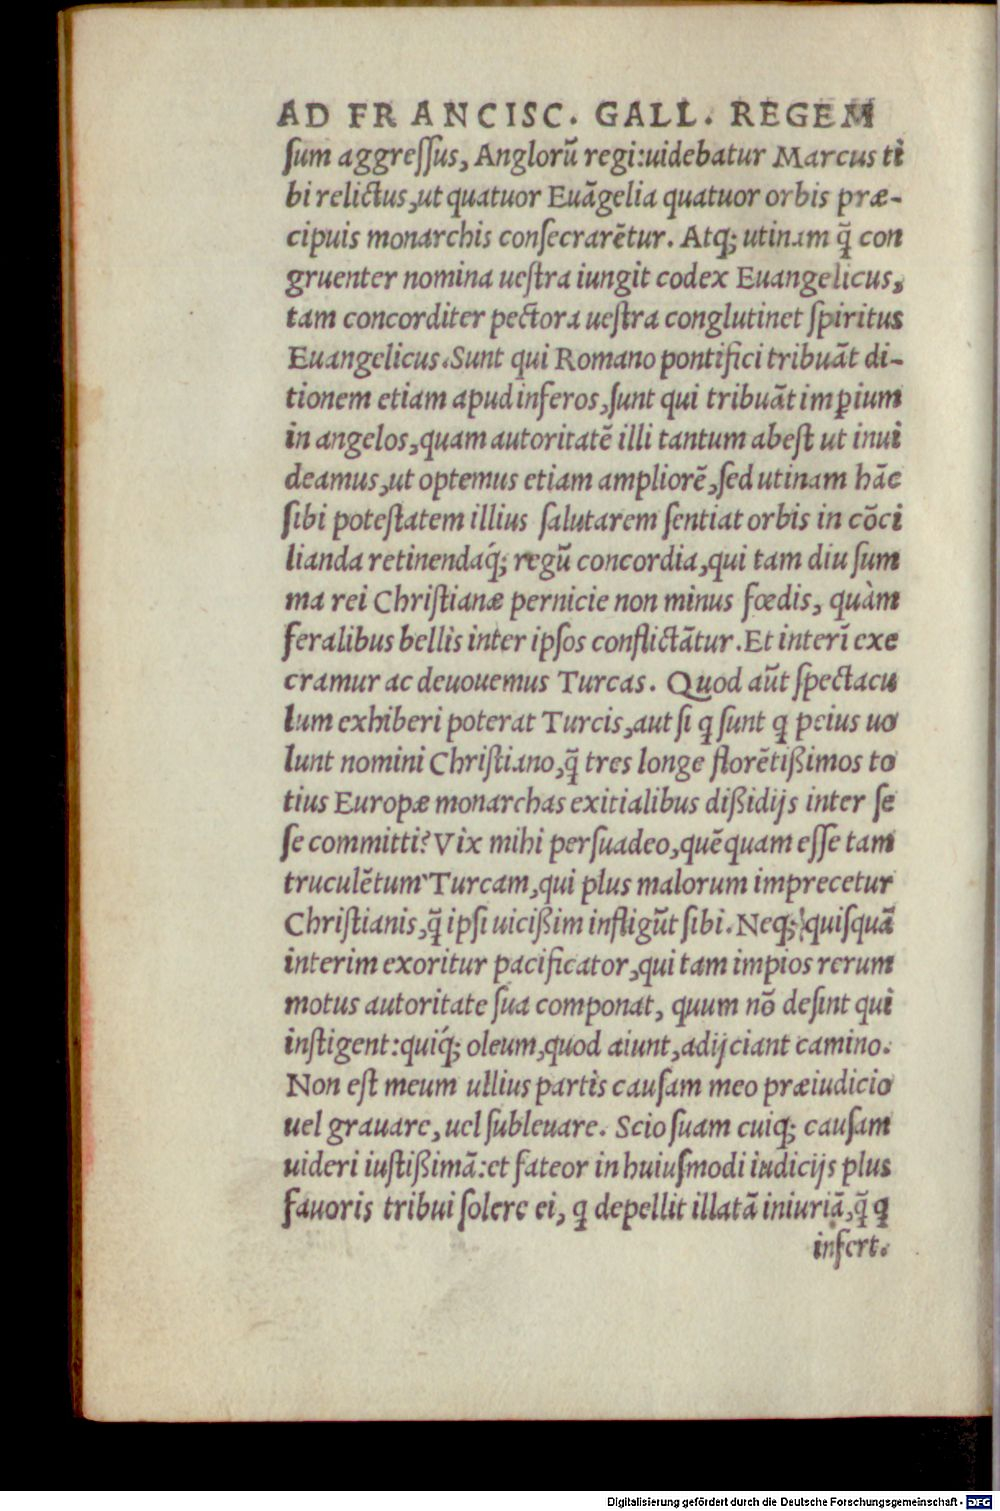 AD FRANCISC. GALL. REGEM
ſum aggreſſus, Anglorū regi:uidebatur Marcus ti
bi relictus,ut quatuor Euāgelia quatuor orbis præ-
cipuis monarchis conſecrarētur. Atq; utinam q̃ con
gruenter nomina ueſtra iungit codex Euangelicus,
tam concorditer pectora ueſtra conglutinet ſpiritus
Euangelicus.Sunt qui Romano pontifici tribuāt di-
tionem etiam apud inferos,ſunt qui tribuāt imꝑium
in angelos,quam autoritatē illi tantum abeſt ut inui
deamus,ut optemus etiam ampliorē,ſed utinam hāc
ſibi poteſtatem illius ſalutarem ſentiat orbis in cōci
lianda retinendaq́; regū concordia,qui tam diu ſum
ma rei Chriſtianæ pernicie non minus fœdis, quàm
feralibus bellis inter ipſos conflictātur.Et interī exe
cramur ac deuouemus Turcas. Quod aūt ſpectacu
lum exhiberi poterat Turcis,aut ſi ꝗ ſunt ꝗ peius uo
lunt nomini Chriſtiano,q̃ tres longe florētißimos to
tius Europæ monarchas exitialibus dißidijs inter ſe
ſe committi?Vix mihi perſuadeo,quēquam eſſe tam
truculētum Turcam,qui plus malorum imprecetur
Chriſtianis,q̃ ipſi uicißim infligūt ſibi.Neq; quiſquā
interim exoritur pacificator,qui tam impios rerum
motus autoritate ſua componat, quum nō deſint qui
inſtigent:quiq́; oleum,quod aiunt,adijciant camino.
Non eſt meum ullius partis cauſam meo præiudicio
uel grauare, uel ſubleuare. Scio ſuam cuiq; cauſam
uideri iuſtißimā:et fateor in huiuſmodi iudicijs plus
fauoris tribui ſolere ei, ꝗ depellit illatā iniuriā,q̃ ꝗ
infert.
Digitalisierung gefördert durch die Deutsche Forschungsgemeinschaft - DFG